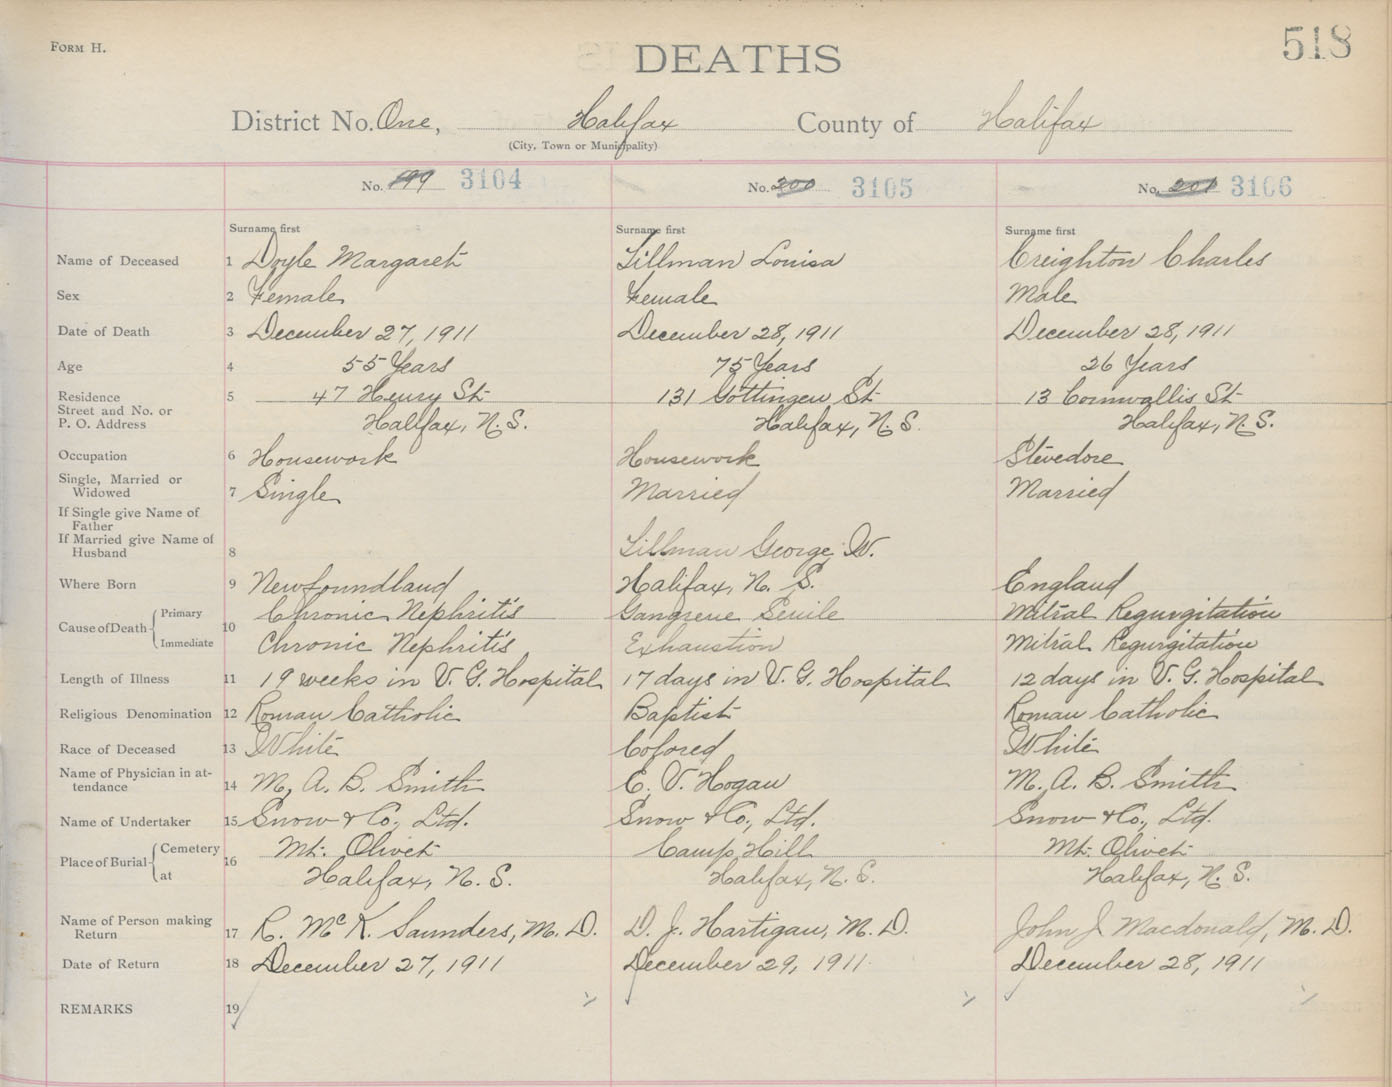 FORM H.
DEATHS
518
District No. One, Halifax County of Halifax
(City, Town or Municipality)
No. 199 3104 No. 200 3105 No. 201 3106
Surname first Surname first Surname first
Name of Deceased 1 Doyle Margaret Tillman Louisa Creighton Charles
Sex 2 Female Female Male
Date of Death 3 December 27, 1911 December 28, 1911 December 28, 1911
Age 4 55 Years 75 Years 26 Years
Residence 5 47 Henry St 131 Gottingen St 13 Cornwallis St
Street and No. or
P. O. Address Halifax, N. S. Halifax, N. S. Halifax, N. S.
Occupation 6 Housework Housework Stevedore
Single, Married or
Widowed 7 Single Married Married
If Single give Name of
Father
If Married give Name of
Husband 8 Tillman George W.
Where Born 9 Newfoundland Halifax, N. S. England
Cause of Death Primary 10 Chronic Nephritis Gangrene Senile Mitral Regurgitation
Immediate Chronic Nephritis Exhaustion Mitral Regurgitation
Length of Illness 11 19 weeks in V. G. Hospital 17 days in V. G. Hospital 12 days in V. G. Hospital
Religious Denomination 12 Roman Catholic Baptist Roman Catholic
Race of Deceased 13 White Colored White
Name of Physician in at-
tendance 14 M. A. B. Smith E. V. Hogan M. A. B. Smith
Name of Undertaker 15 Snow & Co., Ltd. Snow & Co., Ltd. Snow & Co., Ltd.
Place of Burial Cemetery 16 Mt. Olivet Camp Hill Mt. Olivet
at Halifax, N. S. Halifax, N. S. Halifax, N. S.
Name of Person making
Return 17 R. McK. Saunders, M. D. D. J. Hartigan, M. D. John J Macdonald, M. D.
Date of Return 18 December 27, 1911 December 29, 1911 December 28, 1911
REMARKS 19